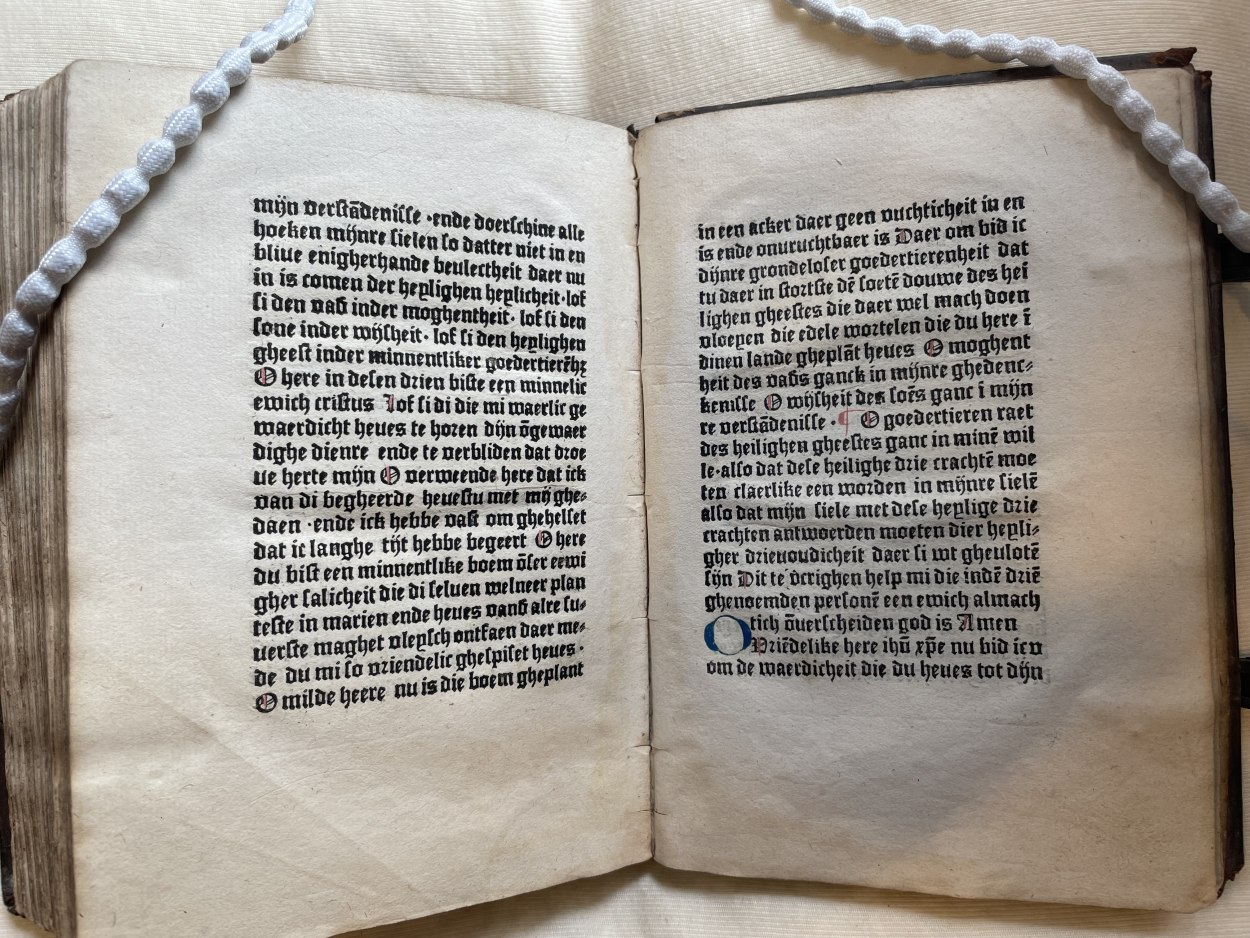 mijn verstādenisse ·ende doerschine alle
hoeken mijnre sielen so datter niet in en
blive enigherhande beulectheit daer nu
in is comen der heylighen heylicheit· lof
si den vad inder moghentheit· lof si den
sone inder wijsheit· lof si den heylighen
gheest inder minnentliker goedertierēhz
O here in desen drien biste een minnelic
ewich cristus Lof si di die mi waerlic ge
waerdicht heves te horen dijn ōgewaer
dighe dienre ende te verbliden dat droe
ue herte mijn O verweende here dat ick
van di begheerde hevestu met mij ghe⸗
daen ·ende ick hebbe vast om ghehelset
dat ic langhe tijt hebbe begeert O here
du bist een minnentlike boem ōser eewi
gher salicheit die di seluen welneer plan
teste in marien ende heues vand alre su⸗
uerste maghet vleysch ontfaen daer me⸗
de du mi so vriendelic ghespiset heues ·
O milde heere nu is die boem gheplant
in een acker daer geen vuchticheit in en
is ende onvruchtbaer is Daer om bid ic
dijnre grondeloser goedertierenheit dat
tu daer in stortste dē soetē douwe des hei
lighen gheestes die daer wel mach doen
vloeyen die edele wortelen die du here ī
dinen lande gheplāt heues O moghent
heit des vads ganck in mijnre ghedenc⸗
kenisse O wijsheit des soēs ganc ī mijn
re verstādenisse · ¶ O goedertieren raet
des heilighen gheestes ganc in minē wil
le·also dat dese heilighe drie crachtē moe
ten claerlike een worden in mijnre sielē
also dat mijn siele met dese heylige drie
crachten antwoerden moeten dier heyli⸗
gher drievoudicheit daer si wt ghevlotē
sijn Dit te vcrighen help mi die indē driē
ghenoemden personē een ewich almach
tich ōuerscheiden god is Amen
O Vriēdelike here ihū xpē nu bid ic v
om de waerdicheit die du heues tot dijn